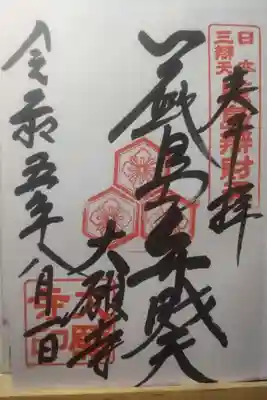 日本
三辨天
嚴島辨財天
奉拝
厳島弁財天
大願寺
令和五年八月一日